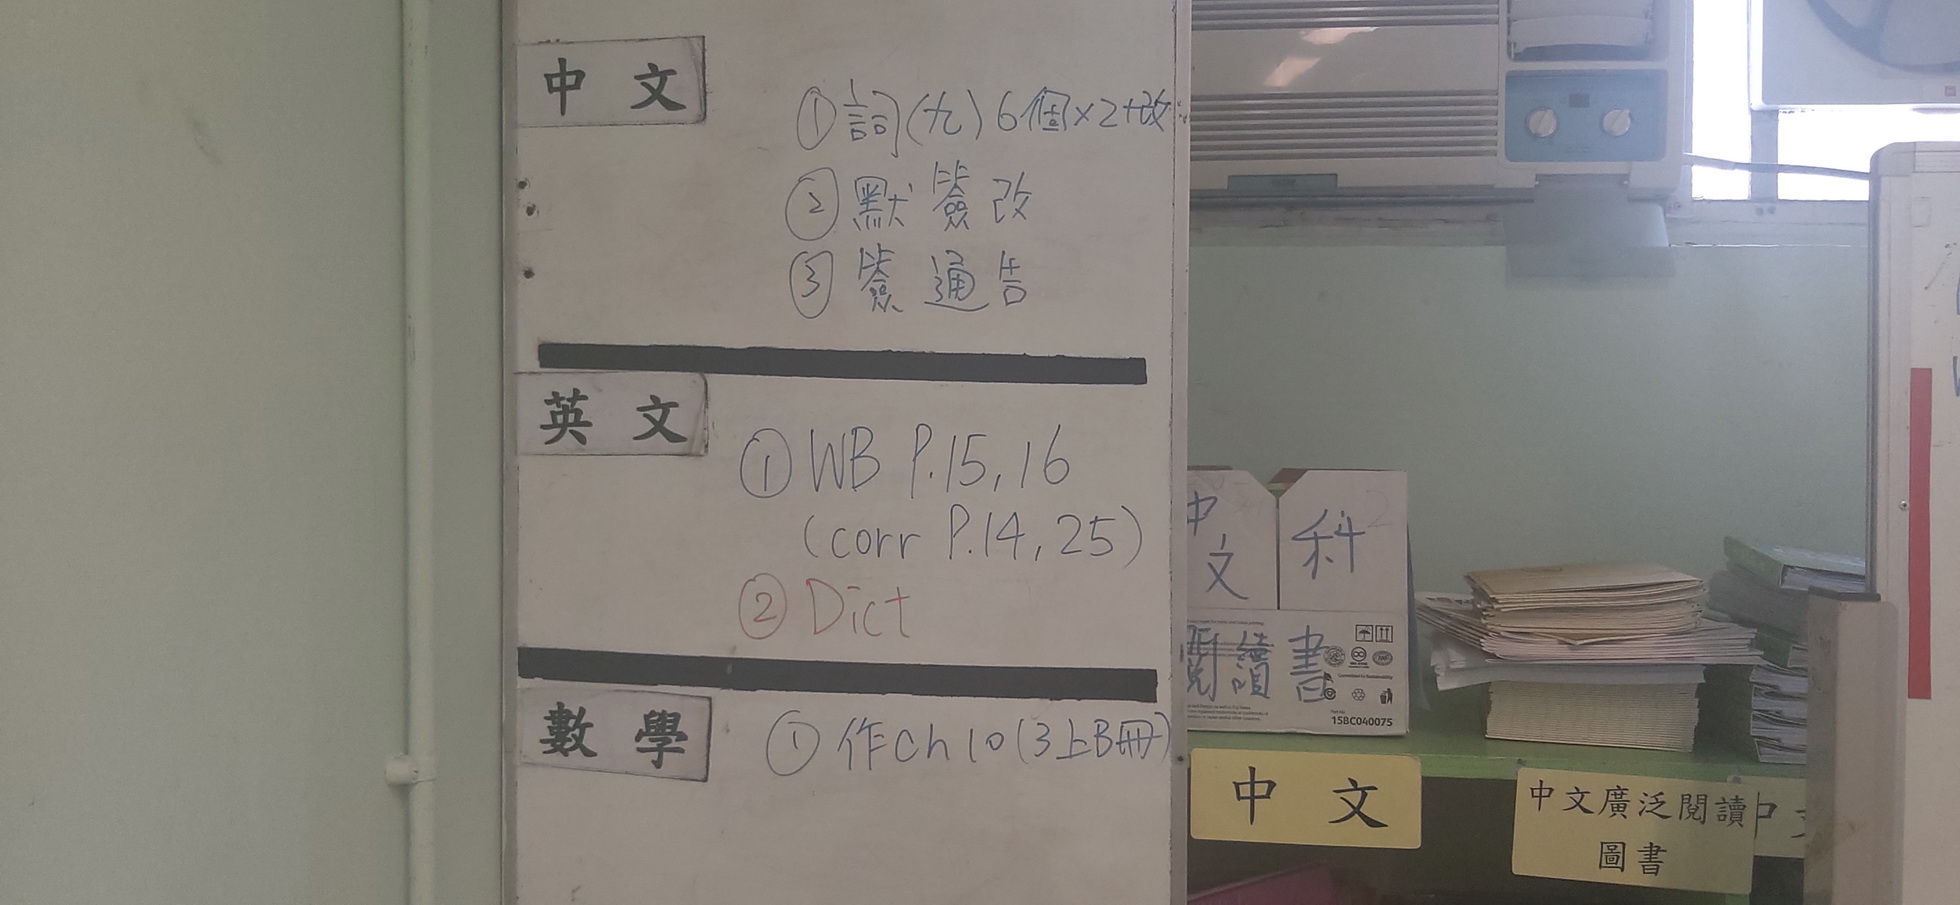 中文
①詞(九)6個×2+改
②默簽改
③簽通告
英文
①WB P.15,16
(corr P.14,25)
②Dict
數學
①作Ch10(3上B冊)
中文
科
閱讀書
Committed to Sustainability
15BC040075
中文
中文廣泛閱讀
圖書
中文